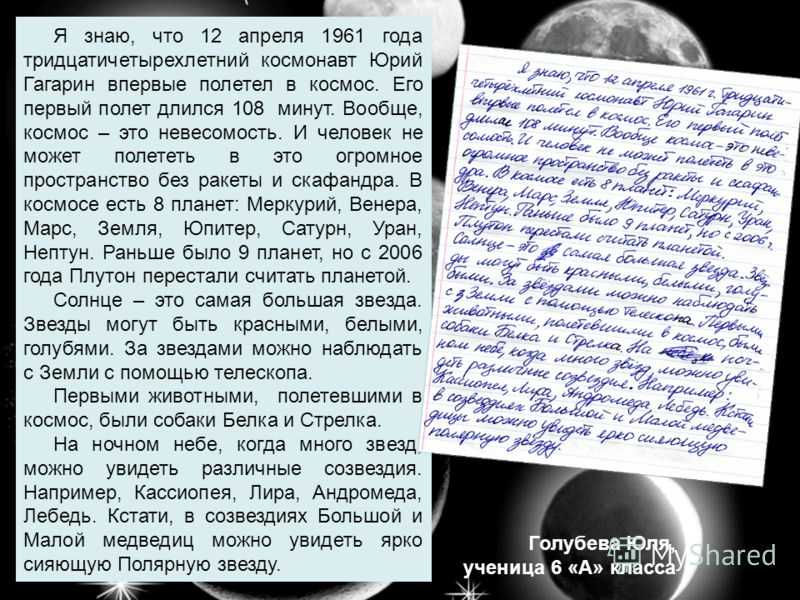 Я знаю, что 12 апреля 1961 года
тридцатичетырехлетний космонавт Юрий
Гагарин впервые полетел в космос. Его
первый полет длился 108 минут. Вообще,
космос – это невесомость. И человек не
может полететь в это огромное
пространство без ракеты и скафандра. В
космосе есть 8 планет: Меркурий, Венера,
Марс, Земля, Юпитер, Сатурн, Уран,
Нептун. Раньше было 9 планет, но с 2006
года Плутон перестали считать планетой.
Солнце – это самая большая звезда.
Звезды могут быть красными, белыми,
голубями. За звездами можно наблюдать
с Земли с помощью телескопа.
Первыми животными, полетевшими в
космос, были собаки Белка и Стрелка.
На ночном небе, когда много звезд,
можно увидеть различные созвездия.
Например, Кассиопея, Лира, Андромеда,
Лебедь. Кстати, в созвездиях Большой и
Малой медведиц можно увидеть ярко
сияющую Полярную звезду.
Я знаю, что 12 апреля 1961 г. тридцати-
четырехлетний космонавт Юрий Гагарин
впервые полетел в космос. Его первый полёт
длился 108 минут. Вообще космос – это неве-
сомость. И человек не может полететь в это
огромное пространство без ракеты и скафан-
дра. В космосе есть 8 планет: Меркурий,
Венера, Марс, Земля, Юпитер, Сатурн, Уран,
Нептун. Раньше было 9 планет, но с 2006 г.
Плутон перестали считать планетой.
Солнце – это самая большая звезда. Звёз-
ды могут быть красными, белыми, голу-
быми. За звёздами можно наблюдать
с Земли с помощью телескопа. Первыми
животными, полетевшими в космос, были
собаки Белка и Стрелка. На ноч-
ном небе, когда много звёзд, можно уви-
деть различные созвездия. Например:
Кассиопея, Лира, Андромеда, Лебедь. Кстати,
в созвездиях Большой и Малой медве-
диц можно увидеть ярко сияющую
полярную звезду.
Голубева Юля,
ученица 6 «А» класса
MyShared